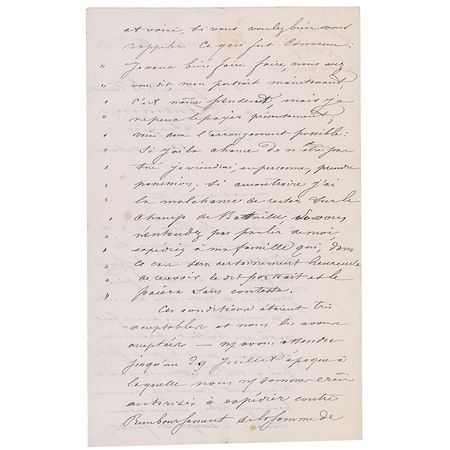 et voici, si vous voulez bien vous
rappeler ce qui fut convenu:
" Je veux bien faire faire, nous avez
" vous dit, mon portrait maintenant,
" c'est même prudent, mais je
" ne peux le payer présentement
" voici donc l'arrangement possible:
" Si j'ai la chance de n'être pas
" tué je viendrai, en personne, prendre
" possession; si au contraire j'ai
" la malchance de rester sur le
" champ de Bataille, si vous
" n'entendez pas parler de moi
" expédiez à ma famille qui, dans
" ce cas sera certainement heureuse
" de recevoir le dit portrait et le
" paiera sans conteste.
Ces conditions étaient très
acceptables et nous les avons
acceptées — nous avons attendu
jusqu'au 29 Juillet époque à
laquelle nous nous sommes crus
autorisés à expédier contre
Remboursement de la somme de